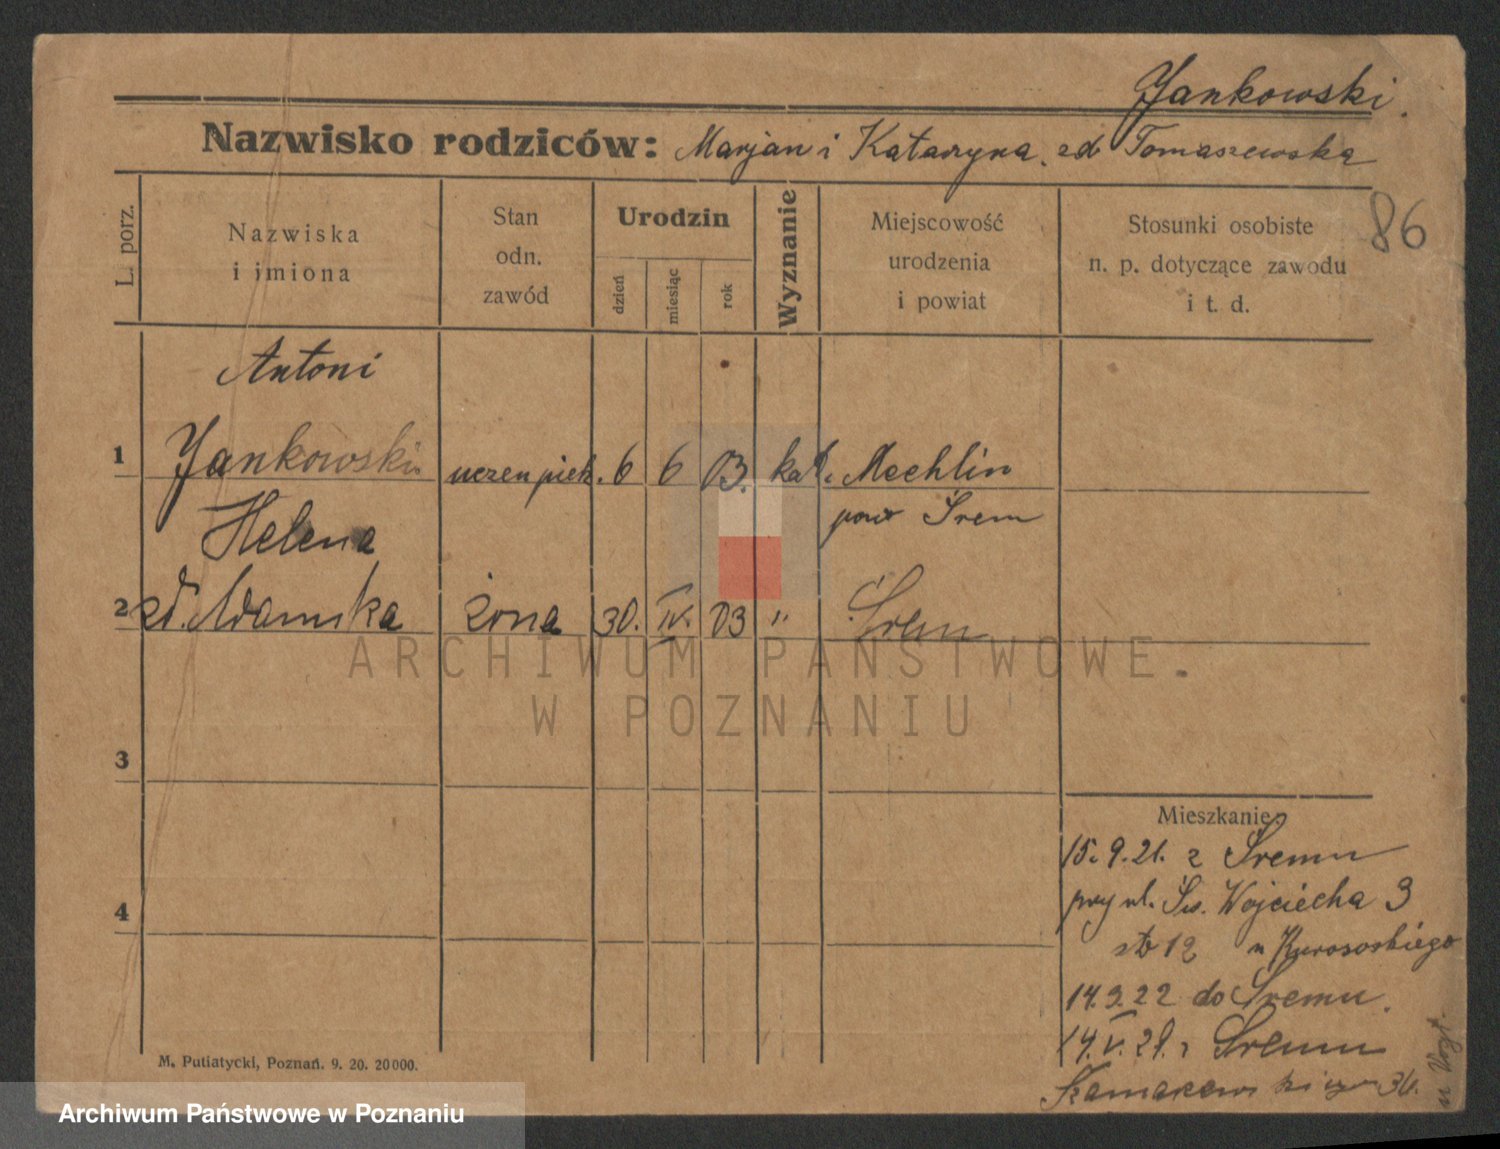 Jankowski.
Nazwisko rodziców: Marjan i Katarzyna. zd Tomaszewska
86
L. porz.
Nazwiska
i imiona
Stan
odn.
zawód
Urodzin
dzień
miesiąc
rok
Wyznanie
Miejscowość
urodzenia
i powiat
Stosunki osobiste
n. p. dotyczące zawodu
i t. d.
Antoni
1 Jankowski. uczen piek. 6 6 03. kat. Mechlin
pow Śrem
Helena
2 zd. Adamska żona 30. IV. 03 " Śrem
3
4
Mieszkanie:
15.9.21. z Śremu
przy ul. Św. Wojciecha 3
stb 12 u
14.9.22 do Śremu.
14.V.28. z Śremu
36.
M. Putiatycki, Poznań. 9. 20. 20000.
ARCHIWUM PAŃSTWOWE
W POZNANIU
Archiwum Państwowe w Poznaniu